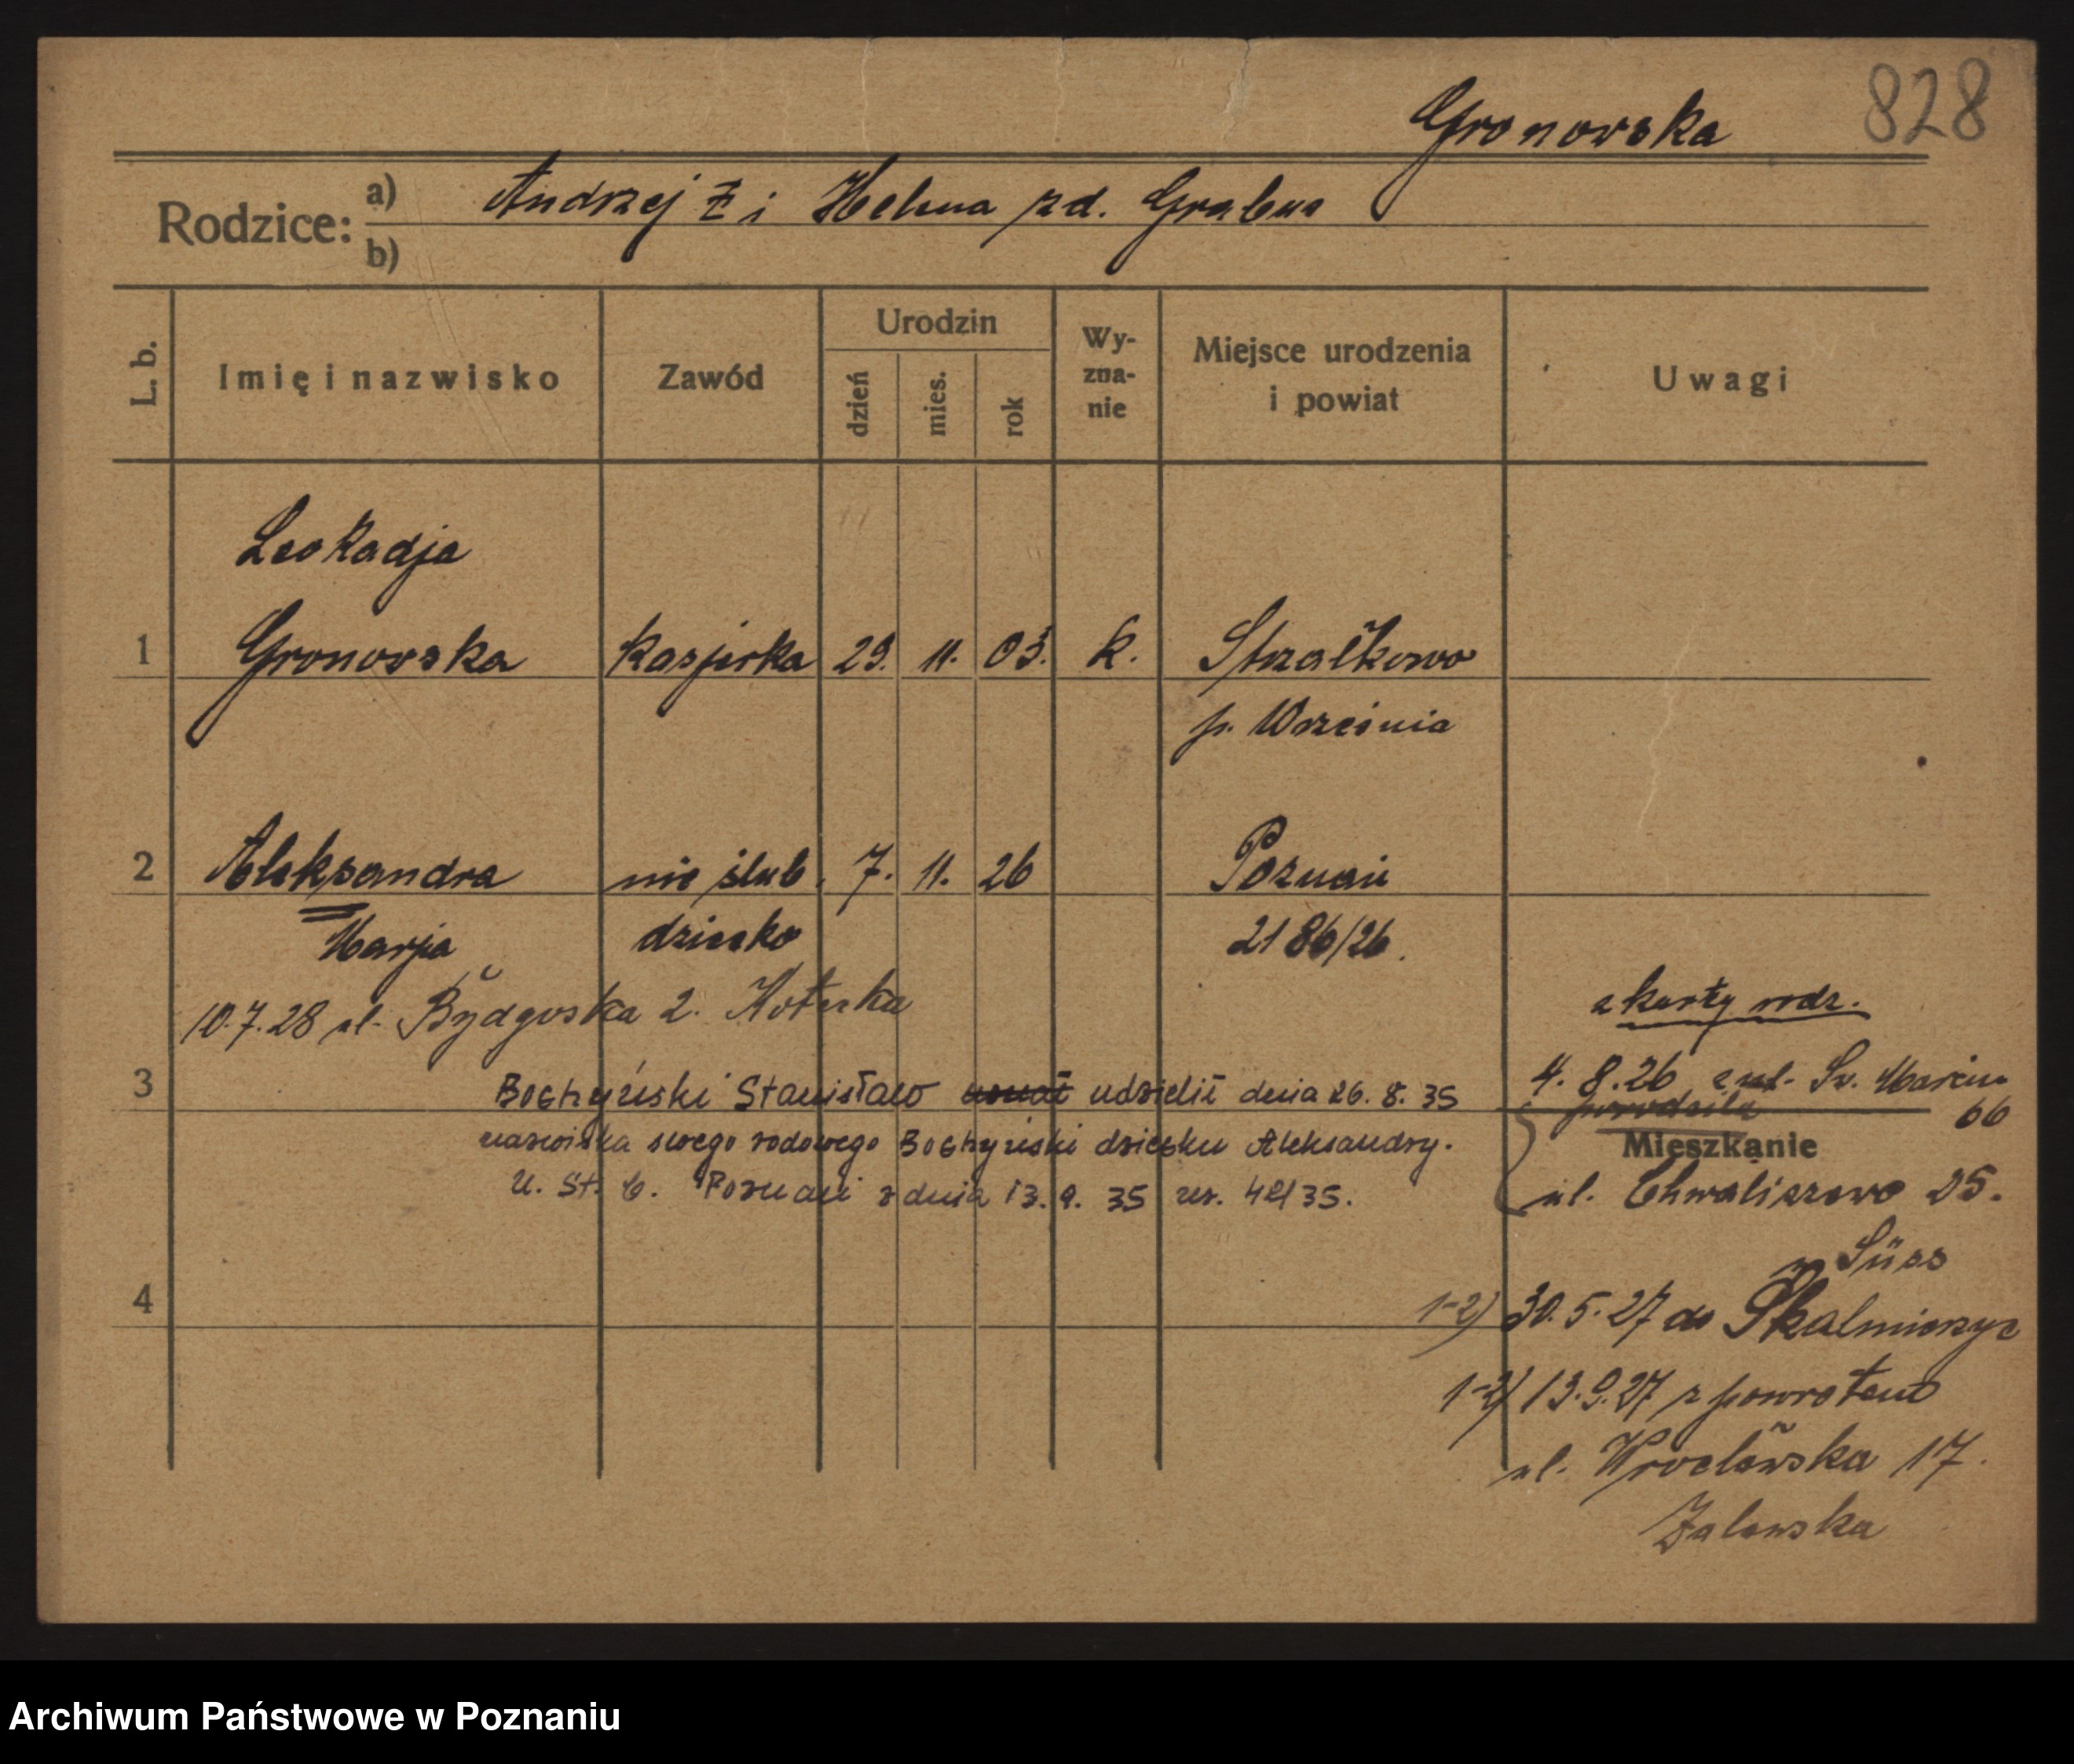 828
Gronowska
Rodzice: a) Andrzej ł i Helena zd.
b)
L. b.
Imię i nazwisko
Zawód
Urodzin
dzień
mies.
rok
Wy-
zna-
nie
Miejsce urodzenia
i powiat
Uwagi
Leokadja
1 Gronowska kasjerka 29. 11. 03. k. Strzałkowo
p. Września
2 Aleksandra nie ślub. 7. 11. 26 Poznań
Marja dziecko 2186/26.
10.7.28 ul. Bydgoska 2.
z karty rodz.
4.8.26 z ul. Św. Marcin
66
3
Stanisław udzielił dnia 26.8.35
nazwiska swego rodowego dziecku Aleksandry.
U. St. C. Poznań z dnia 13.9.35
Mieszkanie
ul. Chwaliszewo 25.
Süss
4
1-2) 30.5.27 do Skalmierzyc
1-2) 13.9.27 z powrotem
ul. Wrocławska 17.
Zalewska
Archiwum Państwowe w Poznaniu